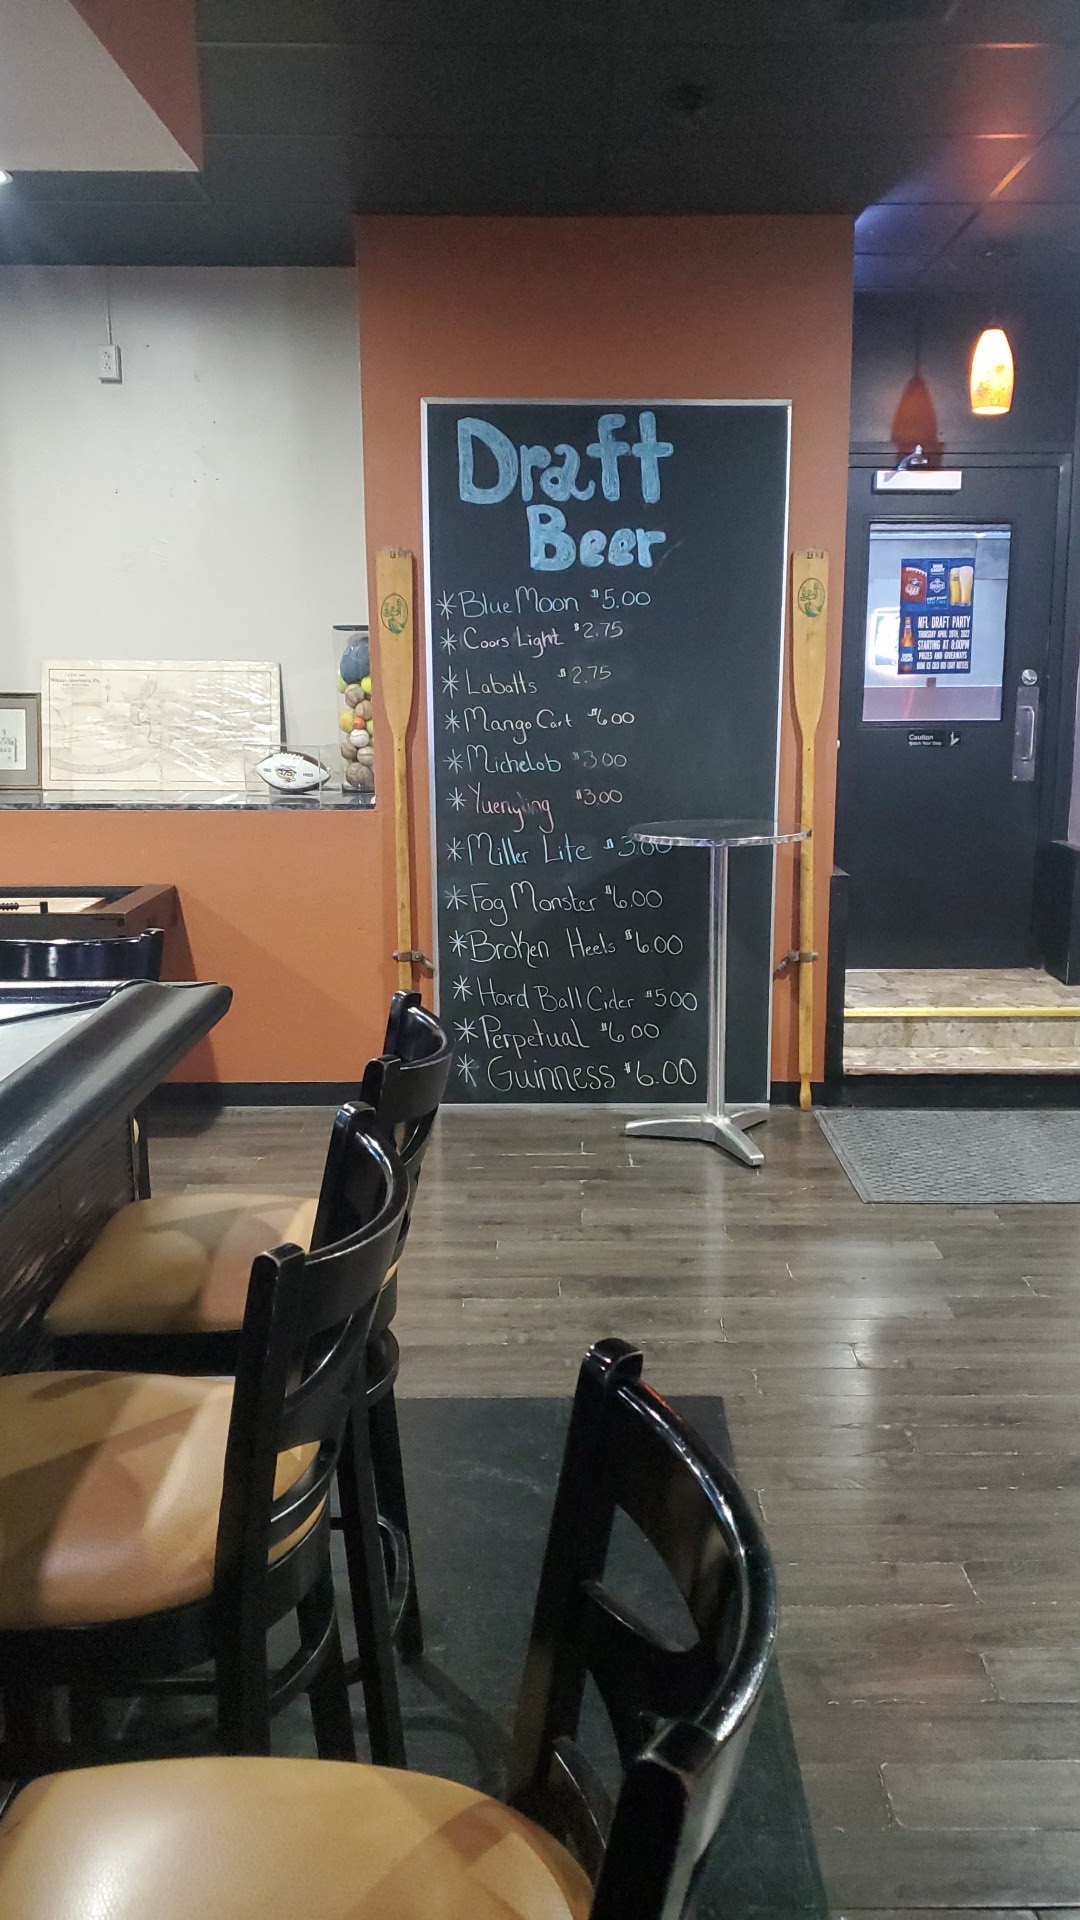 Draft
Beer
* Blue Moon $5.00
* Coors Light $2.75
* Labatts $2.75
* Mango Cart $6.00
* Michelob $3.00
* Yuengling $3.00
* Miller Lite $3.00
* Fog Monster $6.00
* Broken Heels $6.00
* Hard Ball Cider $5.00
* Perpetual $6.00
* Guinness $6.00
NFL DRAFT PARTY
THURSDAY APRIL 28TH, 2022
STARTING AT 8:00PM
PRIZES AND GIVEAWAYS
Caution
Watch Your Step